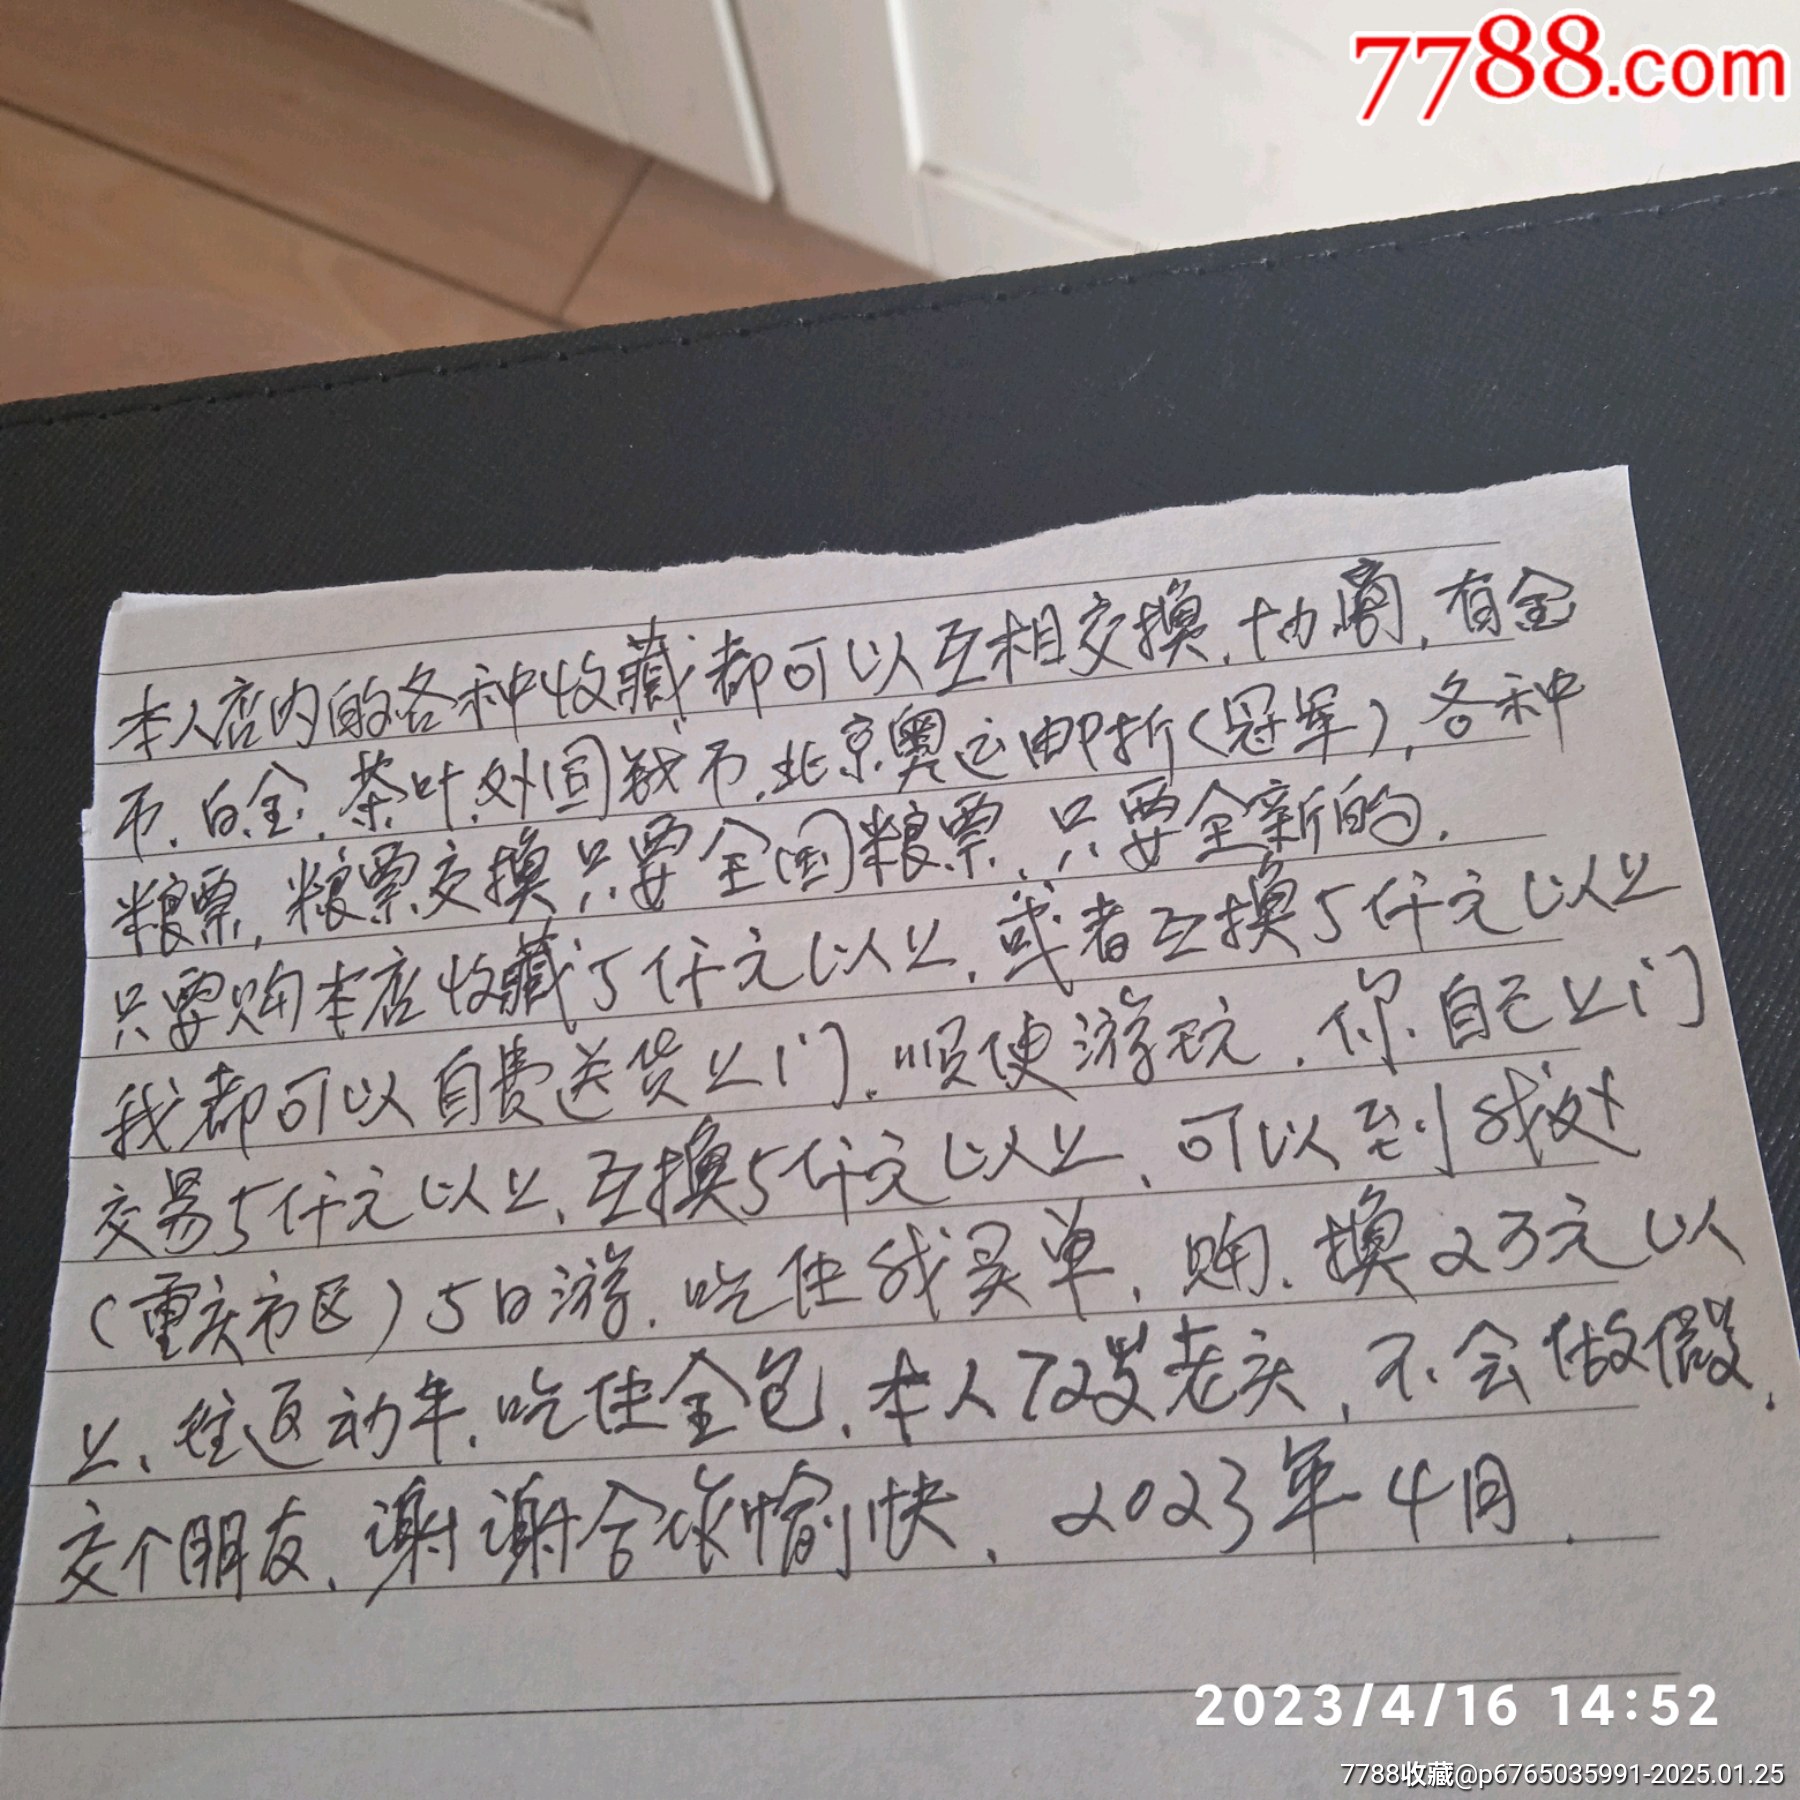 7788.com
本人店内的各种收藏都可以互相交换.协商.有金
币.白金.茶叶.外国钱币.北京奥运邮折(冠军),各种
粮票,粮票交换只要全国粮票.只要全新的.
只要购本店收藏5仟元以上.或者互换5仟元以上
我都可以自费送货上门.顺便游玩.你自己上门
交易5仟元以上、互换5仟元以上、可以到我处
(重庆市区)5日游.吃住我买单,购.换2万元以
上、往返动车.吃住全包.本人72岁老头,不会做假.
交个朋友.谢谢合作愉快.2023年4月.
2023/4/16 14:52
7788收藏@p6765035991-2025.01.25